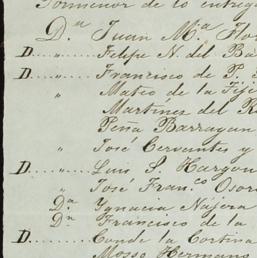 Pormenor de lo entreg
D.n Juan M.a Flo
D. " Felipe N. del Ba
D. " Francisco de P. S
" Mateo de la Tije
Martinez del R
Peña Barragan
" José Cervantes y
D. " Luis S. Hargou
" José Fran.co Osor
D.a Ygnacia Najera
D.n Francisco de la
D. Conde la Cortina
Mosso Hermanos